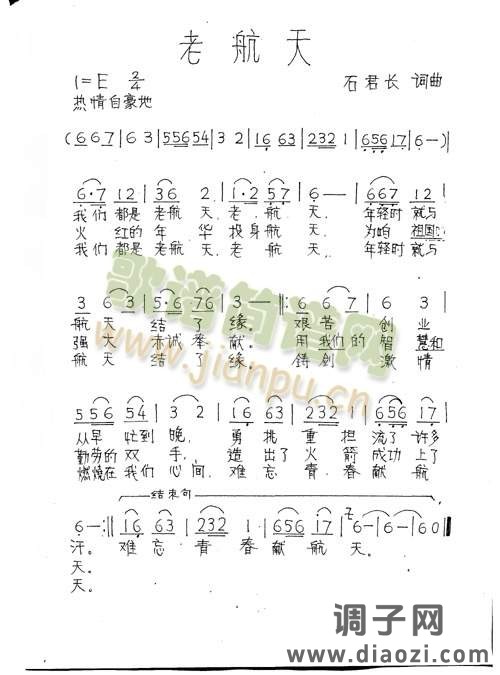 老航天
1=E 2/4
石君长 词曲
热情自豪地
(667|63|556554|32|16 63|232 1|65617|6—)|
6·7 12|36 2|1·2 57|6—|667 12|
我们都是老航天,老航天,年轻时就与
火红的年华投身航天,为咱祖国
我们都是老航天,老航天,年轻时就与
3 63|5·6 76|3—|:6 67|6 3|
航天结了缘。艰苦创业
强大赤诚奉献.用我们的智慧和
航天结了缘。铸剑激情
556 54|3 2|16 63|232 1|656 17|
从早忙到晚,勇挑重担流了许多
勤劳的双手,造出了火箭成功上了
燃烧在我们心间,难忘青春献航
结束句
6—:‖16 63|232 1|656 17|6—|6—|60‖
汗。难忘青春献航天。
天。
天。
歌谱简谱网
www.jianpu.cn
调子网
www.diaozi.com